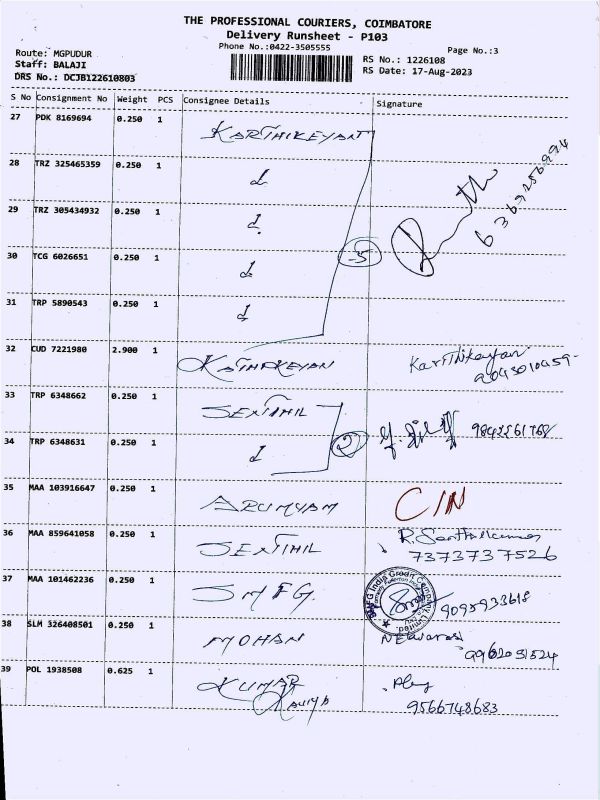 THE PROFESSIONAL COURIERS, COIMBATORE
Delivery Runsheet - P103
Phone No.:0422-3505555
Page No.:3
Route: MGPUDUR
Staff: BALAJI
DRS No.: DCJB122610803
RS No.: 1226108
RS Date: 17-Aug-2023
S No Consignment No Weight PCS Consignee Details Signature
27 PDK 8169694 0.250 1 KARTHIKEYAN
28 TRZ 325465359 0.250 1
29 TRZ 305434932 0.250 1
30 TCG 6026651 0.250 1
5
31 TRP 5890543 0.250 1
32 CUD 7221980 2.900 1 KATHIRKEYAN Karthikeyan
33 TRP 6348662 0.250 1 SENTHIL
34 TRP 6348631 0.250 1
2
35 MAA 103916647 0.250 1 ARUMYAM CIN
36 MAA 859641058 0.250 1 SENTHIL R. Santhilkumar
7373737526
37 MAA 101462236 0.250 1 SMFG. 9095933618
SMFG India Credit Company Limited.
38 SLM 326408501 0.250 1 MOHAN
9962031524
39 POL 1938508 0.625 1 KUMAR
Kaviya
9566748683